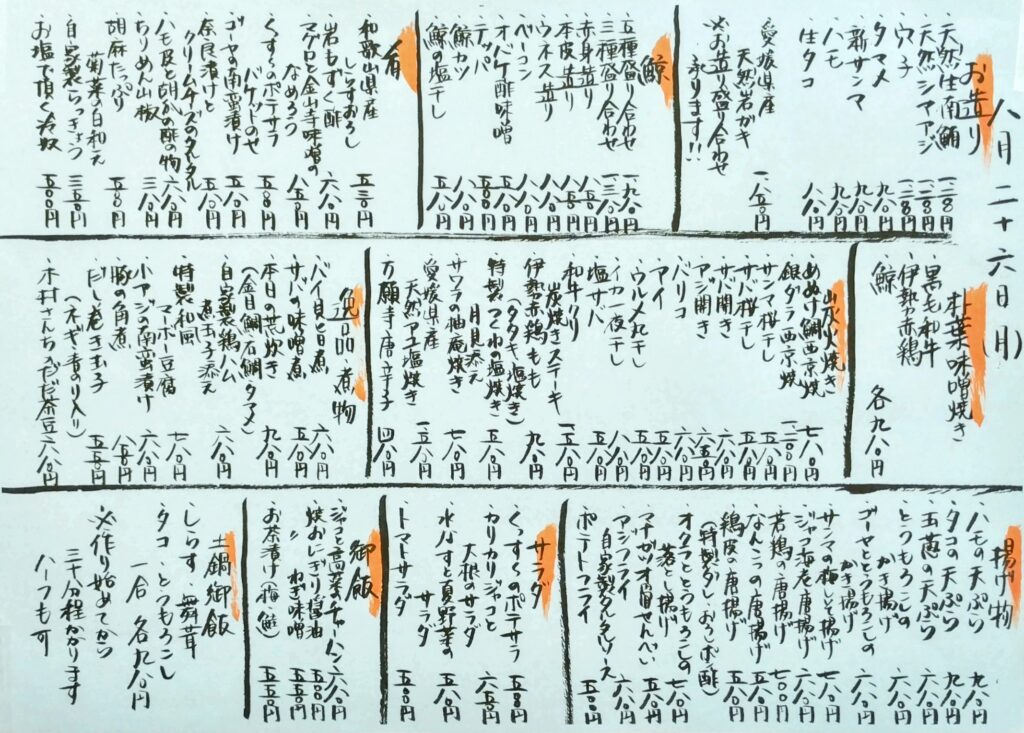 八月二十六日(月)
お造り
・天然生南鮪 一二八〇円
・天然シマアジ 一二八〇円
・穴子 一二八〇円
・タマメ 九八〇円
・新サンマ 九八〇円
・ハモ 九八〇円
・生タコ 八八〇円
愛媛県産
天然岩ガキ 一八五〇円
※お造り盛り合わせ
承ります!!
鯨
・五種盛り合わせ 一九八〇円
・三種盛り合わせ 一三八〇円
・赤身造り
・本皮造り
・ウネス造り
・ベーコン
・オバケ酢味噌
・テッパ
・鯨カツ
・鯨の塩干し 五八〇円
肴
・和歌山県産
しらすおろし 五三〇円
・岩もずく酢 六八〇円
・マグロと金山寺味噌の
なめろう 八五〇円
・くずしのポテサラ
バケットのせ 五八〇円
・ゴーヤの南蛮漬け 五八〇円
・奈良漬けと
クリームチーズのタルタル 五八〇円
・ハモ皮と胡瓜の酢の物 六八〇円
・ちりめん山椒 三八〇円
・胡麻たっぷり
菊菜の白和え 五八〇円
・自家製らっきょう 三五〇円
・お塩で頂く冷奴 五八〇円
朴葉味噌焼き
・黒毛和牛
・伊勢赤鶏
・鯨
各九八〇円
炭火焼き
・めぬけ鯛西京焼 七八〇円
・銀ダラ西京焼 一二〇〇円
・サンマ桜干し
・サバ桜干し
・サバ開き
・アジ開き
・バリコ
・アイ
・ウルメ丸干し
・イカ一夜干し
・塩サバ
・和牛クリ
炭焼きステーキ
・伊勢赤鶏もも
(タタキ・塩焼き) 九八〇円
・特製つくねの塩焼き
月見添え 五八〇円
・サワラの油庵焼き 七八〇円
・愛媛県産
天然アユ塩焼き
・万願寺唐辛子 四八〇円
逸品・煮物
・バイ貝旨煮 六八〇円
・サバの味噌煮 五八〇円
・本日の荒炊き
(金目鯛・石鯛・タマメ) 九八〇円
・自家製鶏ハム
煮玉子添え 六八〇円
・特製和風
マーボー豆腐 七八〇円
・小アジの南蛮漬け 六八〇円
・豚の角煮 八五〇円
・だし巻き玉子 五五〇円
(ネギ・青のり入り)
・木村さんちの茶豆 六八〇円
揚げ物
・ハモの天ぷら 九八〇円
・タコの天ぷら 九八〇円
・玉葱の天ぷら 六八〇円
・とうもろこしの
かき揚げ 六八〇円
・ゴーヤととうもろこしの
かき揚げ 六八〇円
・サンマの梅しそ揚げ 七八〇円
・ジャコ海老唐揚げ 六八〇円
・若鶏の唐揚げ 七〇〇円
・なんこつの唐揚げ 五八〇円
・鶏皮の唐揚げ 五五〇円
(特製だし・おろしポン酢)
・オクラととうもろこしの
落とし揚げ 七八〇円
・マナガツオ骨せんべい 五八〇円
・アジフライ
自家製タルタルソース 六八〇円
・ポテトフライ 五五〇円
サラダ
・くずしのポテサラ 五八〇円
・カリカリジャコと
大根のサラダ 六五〇円
・水なすと夏野菜の
サラダ 五八〇円
・トマトサラダ 五五〇円
御飯
・ジャコと高菜のチャーハン 六八〇円
・焼おにぎり醤油 五〇〇円
・〃 ねぎ味噌 五五〇円
・お茶漬け(梅・鮭) 五五〇円
土鍋御飯
・しらす・舞茸
・タコ・とうもろこし
一合 各九八〇円
※作り始めてから
三十分程かかります
ハーフも可